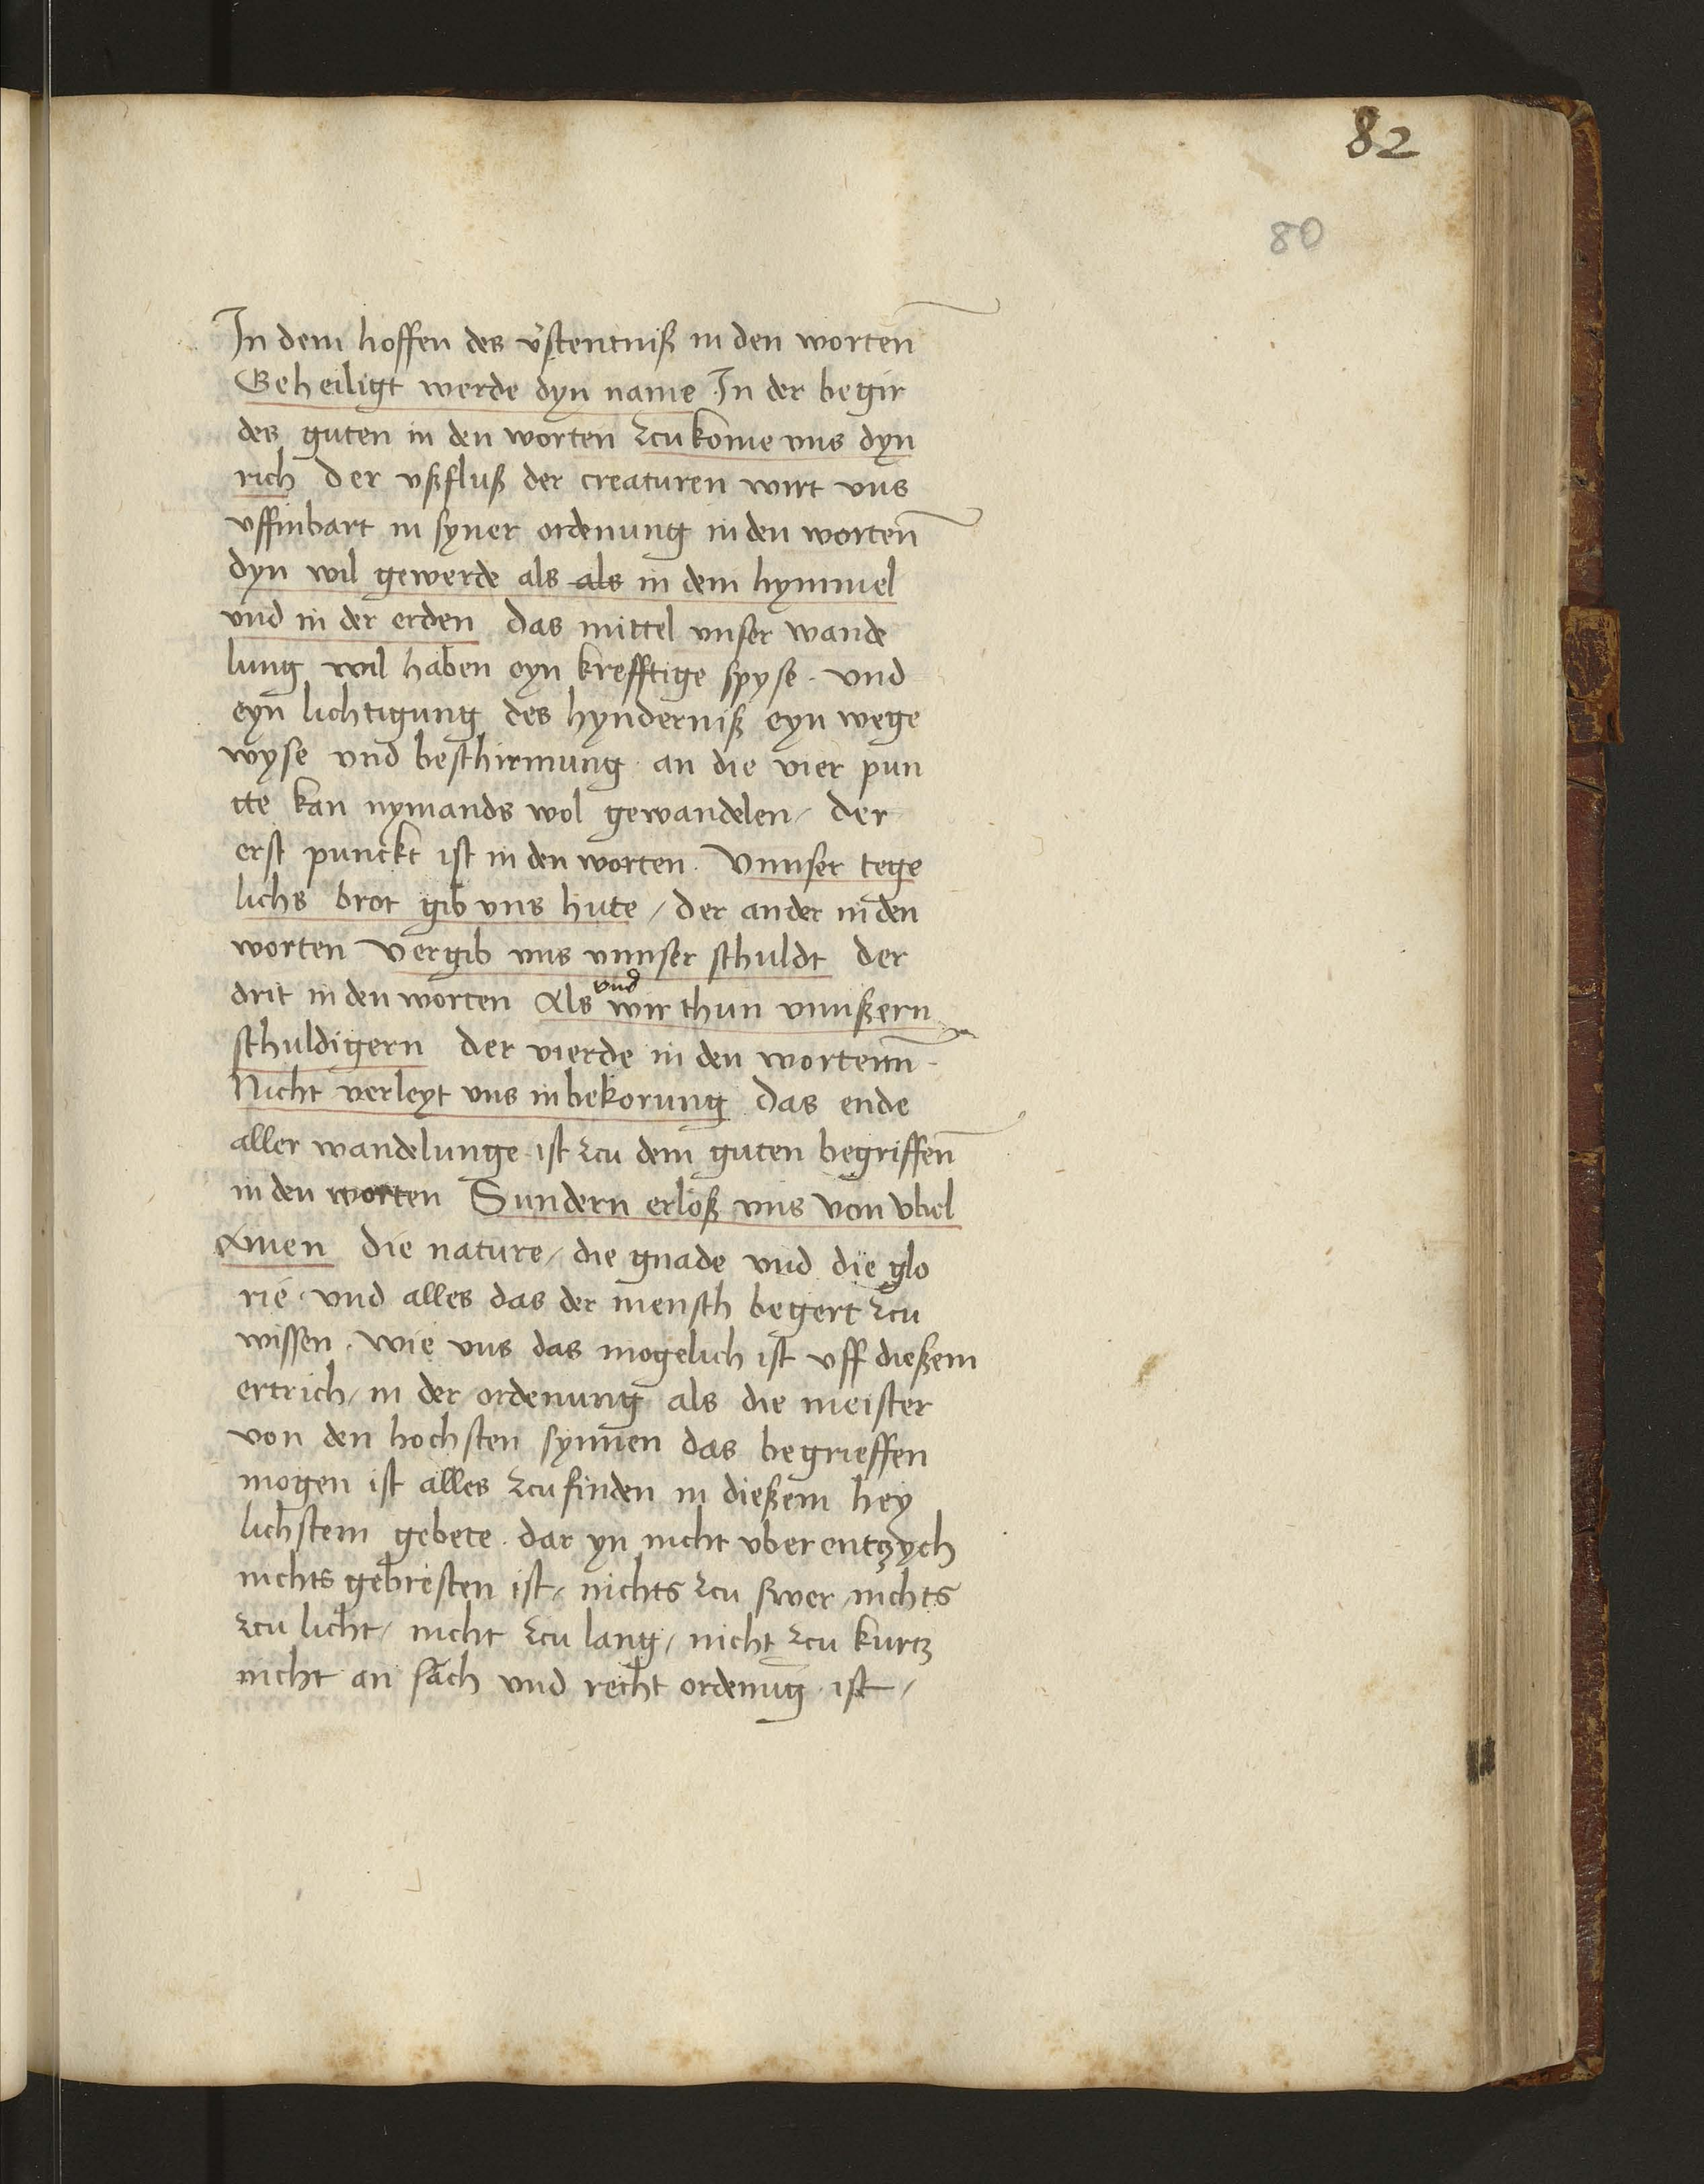 82
80
In dem hoffen des v̕stentniß in den worten̄
Geheiligt werde dyn name In der begir
des guten in den worten zcu kome vns dyn
rich Der vßfluß der creaturen wirt vns
vffinbart in syner ordenung in den worten̄
dyn wil gewerde als als in dem hymmel
vnd in der erden Das mittel vnser wande
lung wil haben eyn krefftige spyse · vnd
eyn lichtigung des hynderniß eyn wege
wyse vnd beschirmung · an die vier pun
cte kan nymands wol gewandelen / der
erst punckt ist in den worten · Vnnser tege
lichs brot gib vns hute / der ander in den
worten Vergib vns vnnser schuldt der
drit in den worten Als vnd wir thun vnnßern
schuldigern der vierde in den wortenn̄ ·
Nicht verleyt vns in bekorung Das ende
aller wandelunge ist zcu dem guten begriffen̄
in den worten Sundern erlöß vns von vbel
Amen Die nature / die gnade vnd die glo
rie · vnd alles das der mensch begert zcu
wissen · wie vns das mogelich ist vff dießem
ertrich / in der ordenung als die meister
von den hochsten synnen das begrieffen
mogen ist alles zcu finden in dießem hey
lichstem gebete · dar yn nicht vber entzych
nichts gebresten ist / nichts zcu swer / nichts
zcu licht / nicht zcu lang / nicht zcu kurtz
nicht an sach vnd recht ordenūg ist /